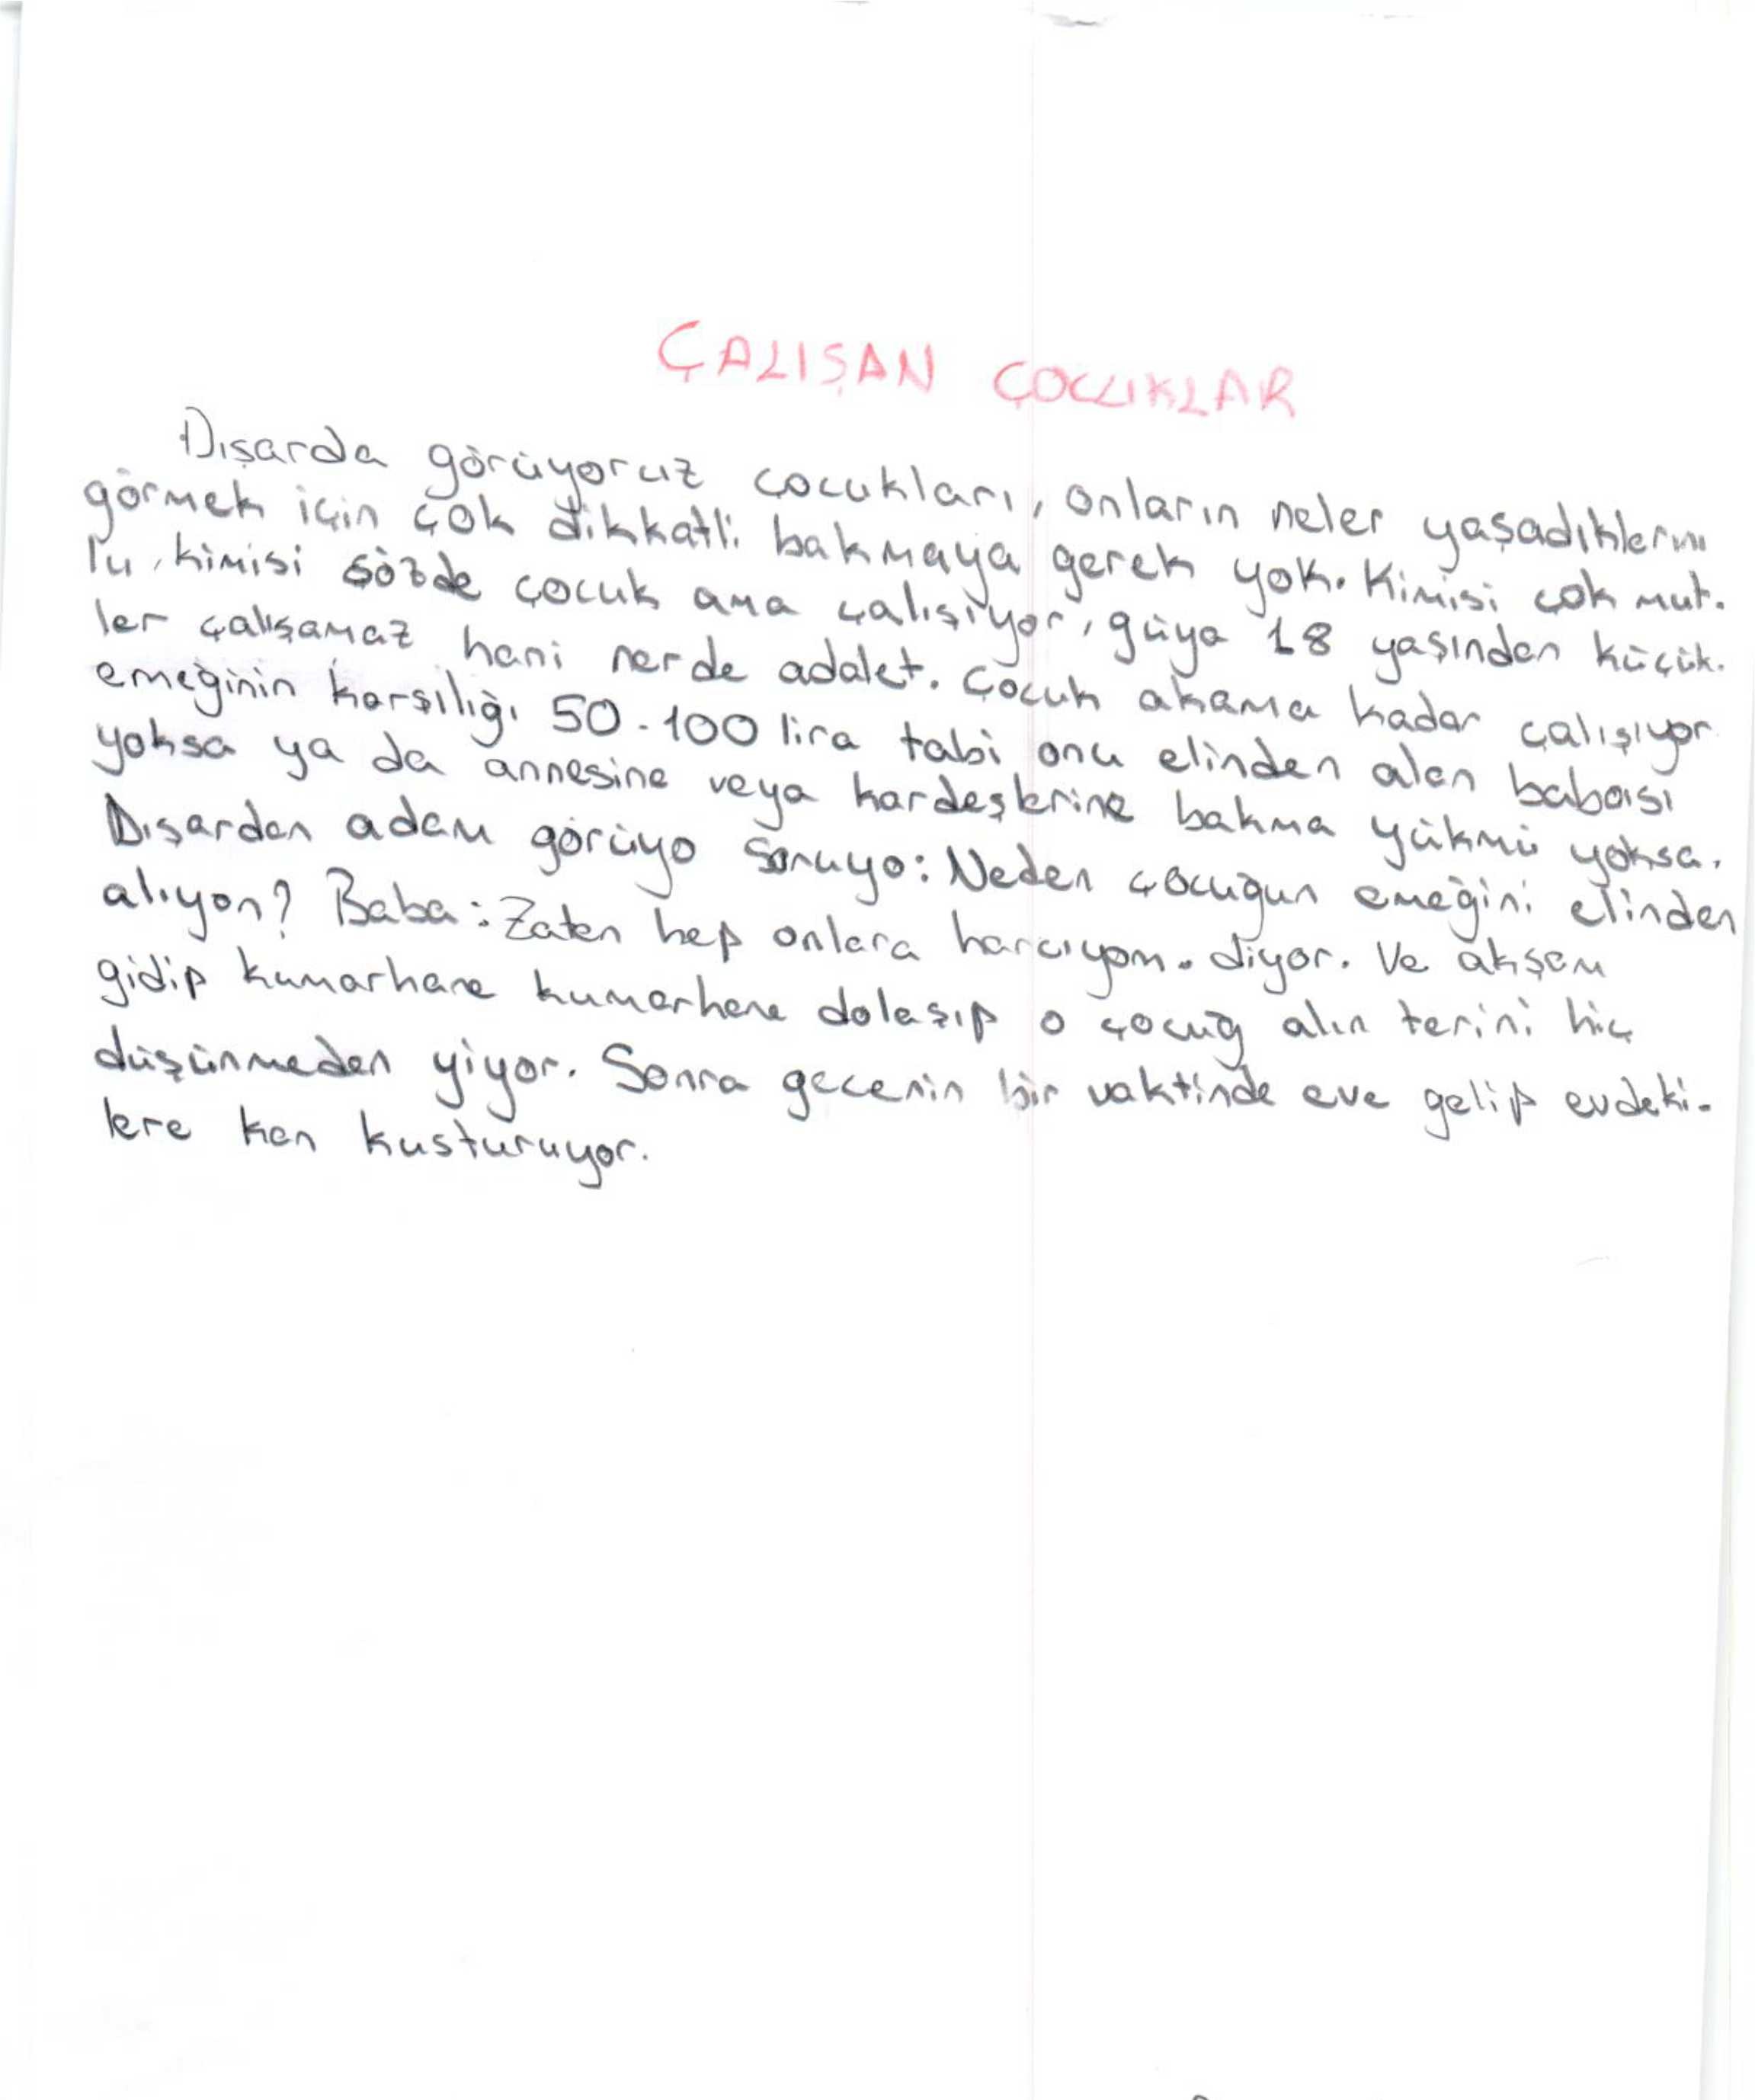 ÇALIŞAN ÇOCUKLAR
Dışarda görüyoruz çocukları, onların neler yaşadıklarını
görmek için çok dikkatli bakmaya gerek yok. Kimisi çok mut-
lu, kimisi sözde çocuk ama çalışıyor, güya 18 yaşından küçük-
ler çalışamaz hani nerde adalet. Çocuk akama kadar çalışıyor
emeğinin karşılığı 50-100 lira tabi onu elinden alan babası
yoksa ya da annesine veya kardeşlerine bakma yükmü yoksa.
Dışardan adam görüyo soruyo: Neden çocuğun emeğini elinden
alıyon? Baba: Zaten hep onlara harcıyom. diyor. Ve akşam
gidip kumarhane kumarhane dolaşıp o çocuğ alın terini hiç
düşünmeden yiyor. Sonra gecenin bir vaktinde eve gelip evdeki-
lere kan kusturuyor.